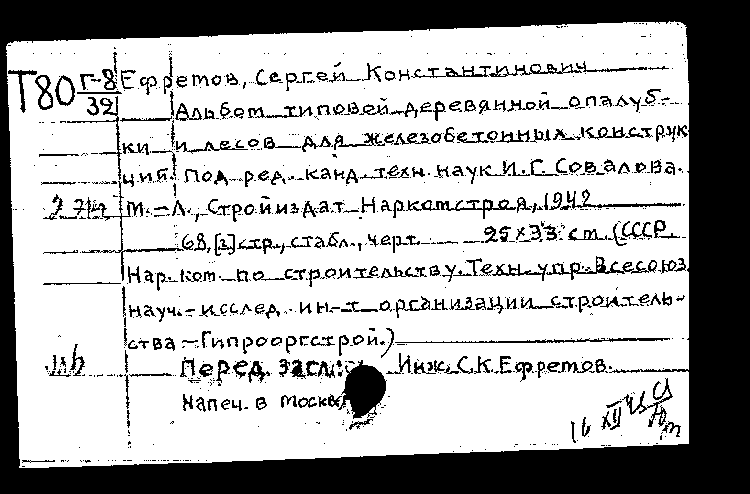 Т80 Г-8 Ефремов, Сергей Константинович
32 Альбом типовей деревянной опалуб-
ки и лесов для железобетонных конструк
ций. Под ред. канд. техн. наук И.Г. Совалова.
М.-Л., Стройиздат Наркомстроя, 1942
68,[2] стр., с табл., черт. 25×33 см. (СССР.
Нар. ком. по строительству. Техн. упр. Всесоюз.
науч.-исслед. ин-т организации строитель-
ства - Гипрооргстрой.)
Перед. загл.: Инж. С.К. Ефремов.
Напеч. в Москве
16 XII 43